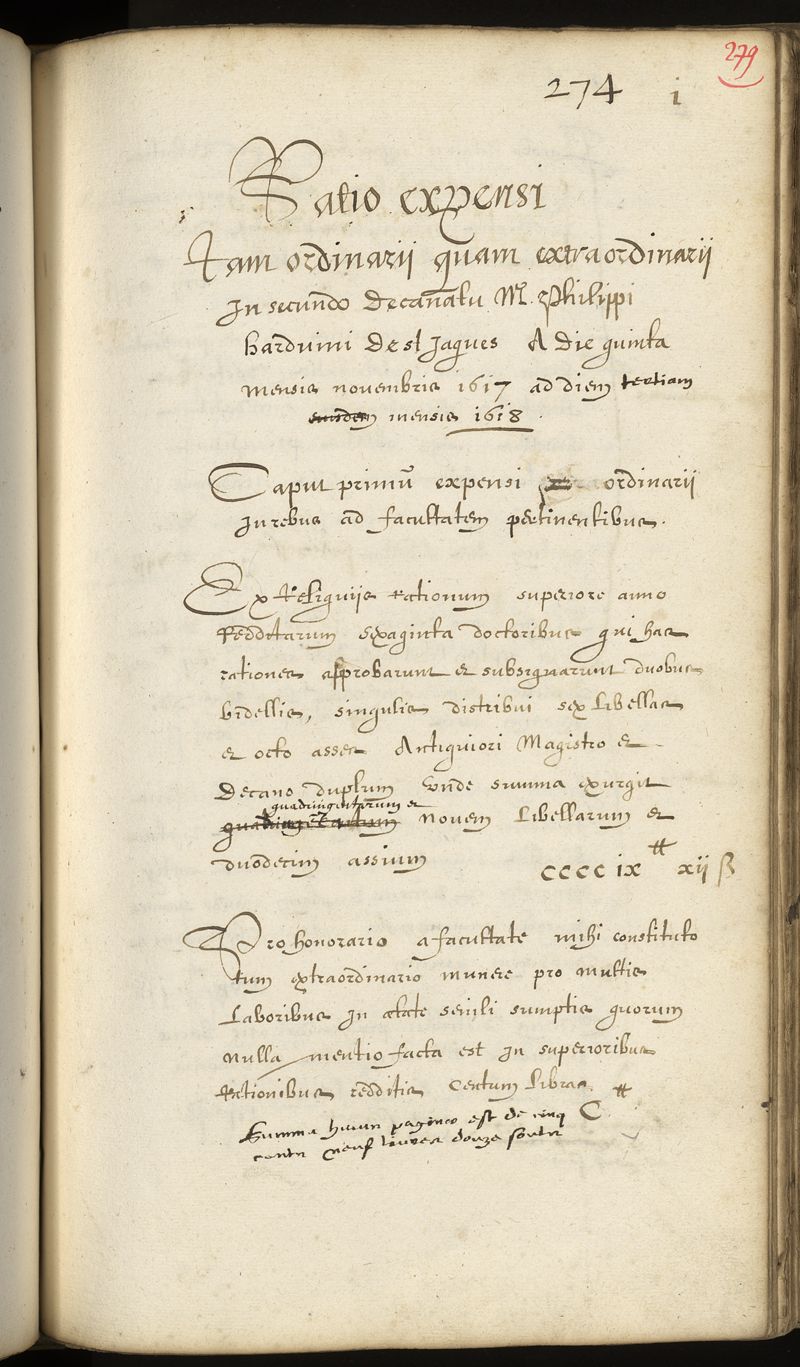 279
274 i
Ratio expensi
tam ordinarii quam extraordinarii
In secundo decanatu M. Philippi
harduini de st Jaques A die quinta
mensis novembris 1617 ad diem tertiam
eiusdem mensis 1618.
Caput primū expensi ordinarii
In rebus ad facultatem pertinentibus.
Ex Reliquiis rationum superiore anno
redditarum sexaginta doctoribus qui has
rationes approbarunt et subsignarunt duobus
bidellis, singulis distribui sex libellas
et octo asses Antiquiori Magistro et
Decano duplum unde summa exurgit
quadringentarum et
novem Libellarum et
duodecim assium
CCCC ix ₶ xii ß
Pro honorario a facultate mihi constituto
tum extraordinario munere pro multis
Laboribus in ætate senili sumptis quorum
nulla mentio facta est in superioribus
rationibus redditis Centum libras. ₶
C
Summa huius paginæ est de cinq
cents neuf livres douze soulz